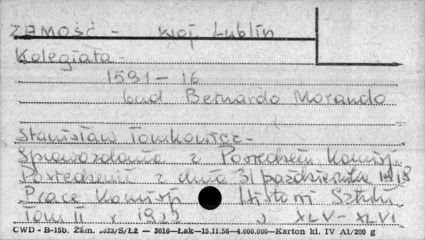 ZAMOŚĆ - woj. Lublin
Kolegiata
1591 - 16
bud Bernardo Morando
Stanisław Tomkowicz -
Sprawozdania z Posiedzeń Komisji
Posiedzenie z dnia 31 października 1918
Prace Komisji Historii Sztuki
Tom II XLV - XLVI
CWD - B-15b. Zam. S/Łż — 3016 —Łak—15.11.56—4.000.000—Karton kl. IV A1/200 g